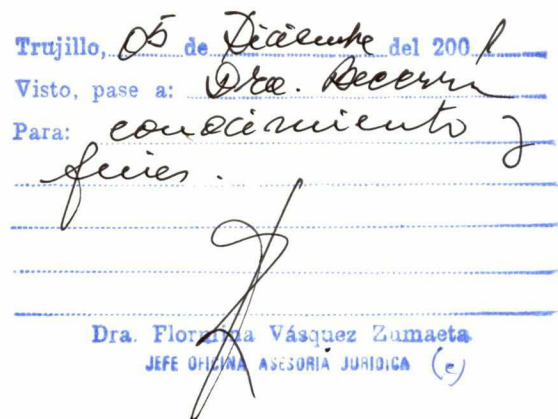 Trujillo, 05 de Diciembre del 2001
Visto, pase a: Dra. Becerra
Para: conocimiento y
fines.
Dra. Flormina Vásquez Zumaeta
JEFE OFICINA ASESORIA JURIDICA (e)